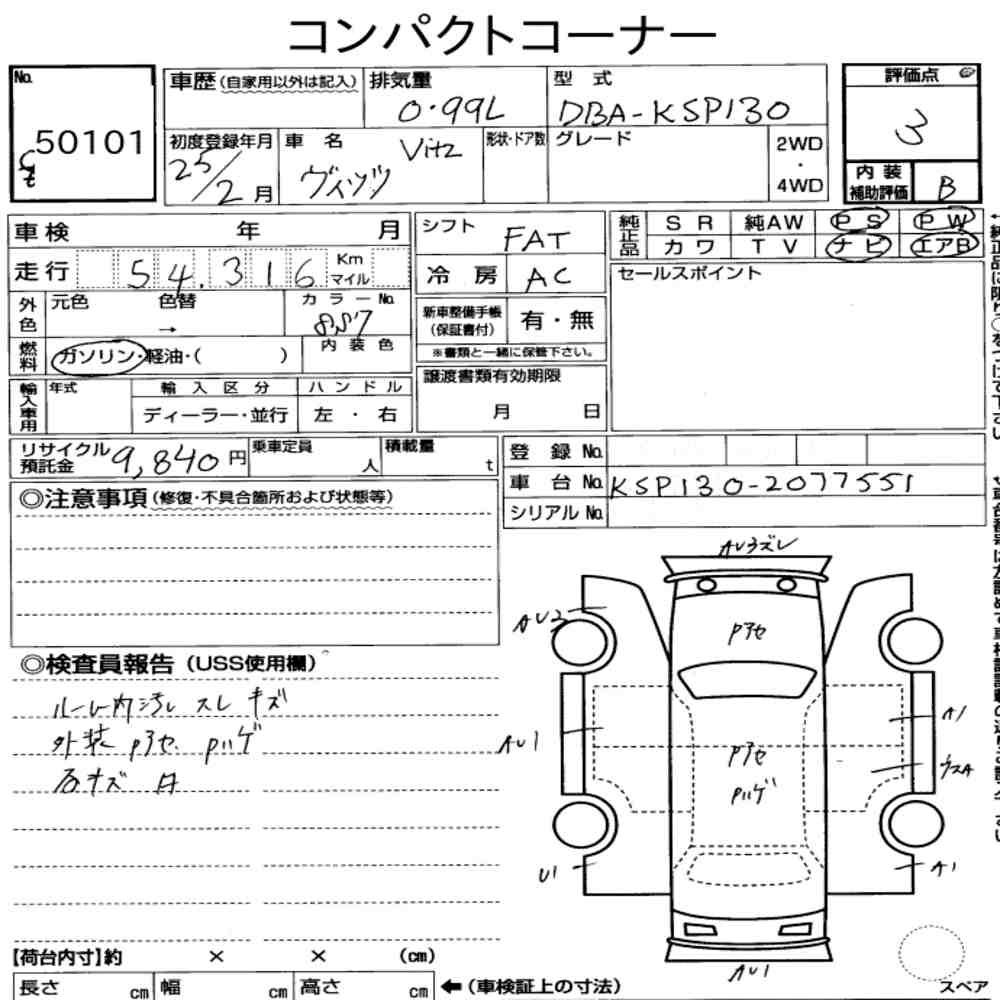 コンパクトコーナー
No.
50101
車歴(自家用以外は記入)
排気量
0.99L
型式
DBA-KSP130
評価点
3
初度登録年月
25/2月
車名
Vitz
ヴィッツ
形状・ドア数
グレード
2WD
・
4WD
内装
補助評価
B
車検 年 月
シフト
FAT
純正品
SR 純AW PS PW
カワ TV ナビ エアB
走行 54.316 Km マイル
冷房 AC
セールスポイント
外色 元色 色替 →
カラーNo.
887
新車整備手帳
(保証書付)
有・無
※書類と一緒に保管下さい。
燃料 ガソリン・軽油・( )
内装色
譲渡書類有効期限
月 日
輸入車用 年式 輸入区分 ハンドル
ディーラー・並行 左・右
リサイクル
預託金 9,840円
乗車定員 人
積載量 t
登録No.
車台No. KSP130-2077551
シリアルNo.
◎注意事項(修復・不具合箇所および状態等)
◎検査員報告(USS使用欄)
ルーム内汚レ スレ キズ
外装 Pアセ Pハゲ
AU3ズレ
AU2
Pアセ
AU1
A1
Pアセ
Pハゲ
ウスA
U1
A1
AU1
【荷台内寸】約 × × (cm)
長さ cm 幅 cm 高さ cm ←(車検証上の寸法)
スペア